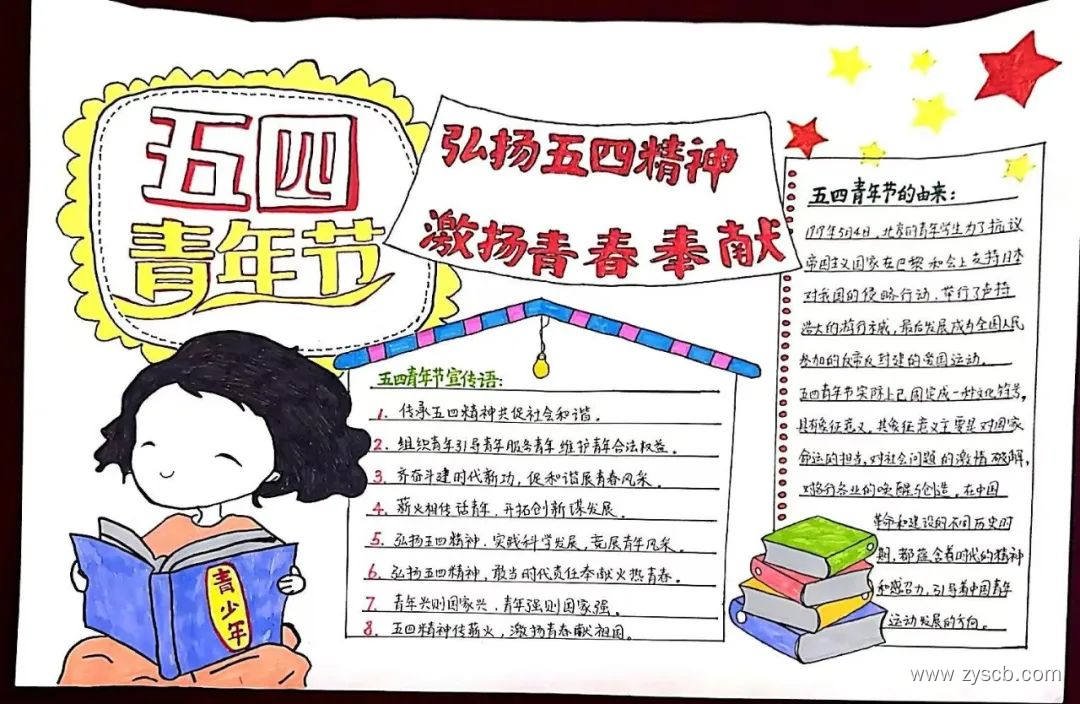 五四
青年节
弘扬五四精神
激扬青春奉献
五四青年节宣传语：
1. 传承五四精神共促社会和谐。
2. 组织青年引导青年服务青年维护青年合法权益。
3. 齐奋斗建时代新功，促和谐展青春风采。
4. 薪火相传话青年，开拓创新谋发展。
5. 弘扬五四精神，实践科学发展，竞展青年风采。
6. 弘扬五四精神，敢当时代责任奉献火热青春。
7. 青年兴则国家兴，青年强则国家强。
8. 五四精神传薪火，激扬青春献祖国。
青少年
五四青年节的由来：
1919年5月4日，北京的青年学生为了抗议
帝国主义国家在巴黎和会上支持日本
对我国的侵略行动，举行了声持
浩大的游行示威，最后发展成为全国人民
参加的反帝反封建的爱国运动。
五四青年节实际上已固定成一种文化符号，
具有象征意义，其象征意义主要是对国家
命运的担当，对社会问题的激情破解，
对各行各业的唤醒与创造。在中国
革命和建设的不同历史时
期，都蕴含着时代的精神
和感召力，引导着中国青年
运动发展的方向。
www.zyscb.com